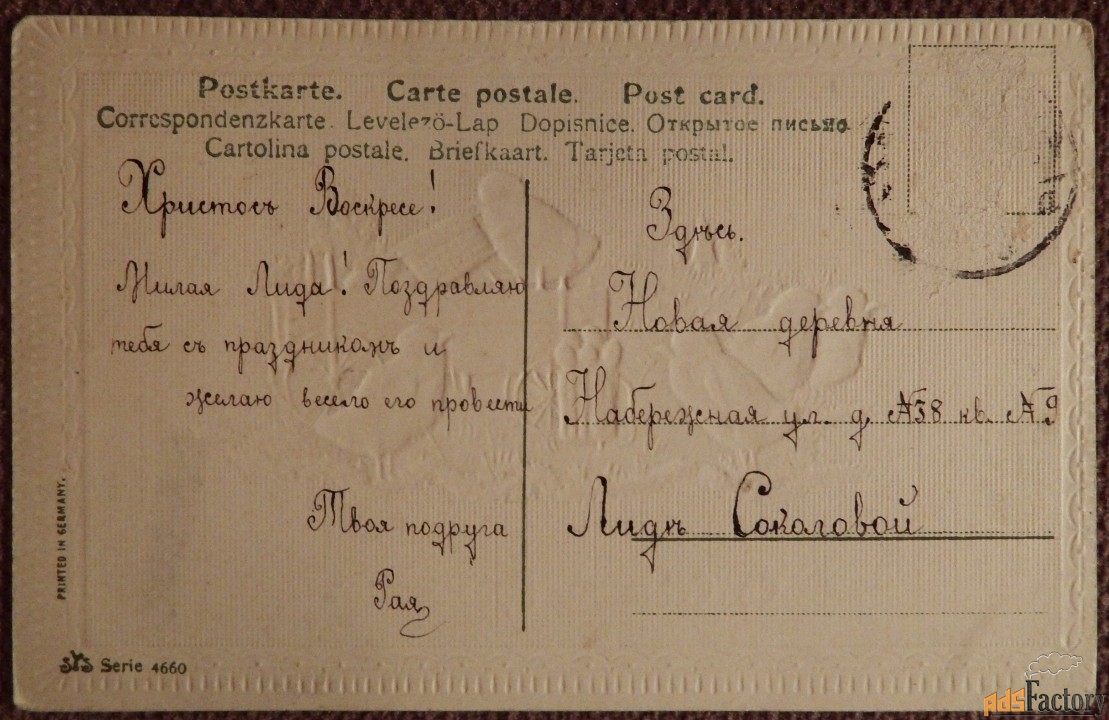 Postkarte. Carte postale. Post card.
Correspondenzkarte. Levelező-Lap Dopisnice. Открытое письмо
Cartolina postale. Briefkaart. Tarjeta postal.
Христосъ Воскресе!
Милая Лида! Поздравляю
тебя съ праздникомъ и
желаю весело его провести
Твоя подруга
Рая
Здѣсь.
Новая деревня
Набережная ул. д. №58 кв. №9
Лидѣ Соколовой
PRINTED IN GERMANY.
Serie 4660
AdsFactory